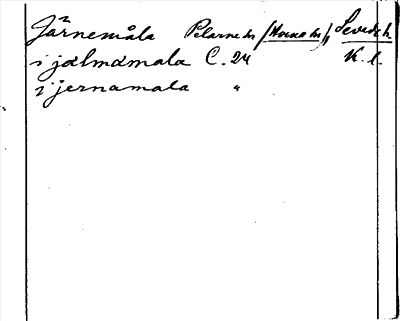 Järnemåla Pelarne hs (Anna hs), Sevede h.
i jalmamala C. 24 K. l.
i jernamala "